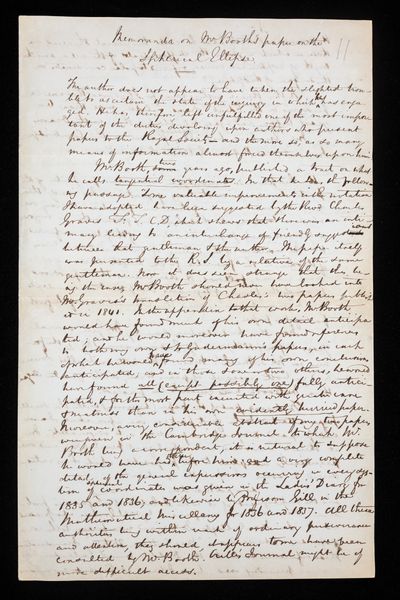 Memoranda on Mr Booth's paper on the
Spherical Ellipse
11
The author does not appear to have taken the slightest trou-
ble to ascertain the state of the inquiry in which he has enga-
ged. He has, therefore left unfulfilled one of the most impor-
tant of the duties devolving upon authors who present
papers to the Royal Society – and the more so, as so many
means of information almost forced themselves upon him.
Mr Booth, some years ago, published a tract on what
he calls tangential coordinates. In that he
passage "Some valuable improvements in the notation
I have adopted have been suggested by the Revd Charles
Graves F.T.C.D. which shows that there was an inti-
macy leading to an interchange of friendly suggestions
between that gentleman & the author. The paper itself
was presented to the R.S. by a relative of the same
gentleman. Now it does seem strange that this be-
ing the case, Mr Booth should never have looked into
Mr Graves's translation of Chasles's two papers publish-
ed in 1841. In the appendix to that work, Mr Booth
would have found much of his own detail anticipa-
ted; and he would moreover have found references
to both my own & to Gudermann's papers, in each
of which he would have many of his own conclusions
anticipated, and in those & one or two others, he would
have found all (except possibly one) fully antici-
pated, & for the most part executed with greater care
& neatness than in his own evidently hurried paper.
Moreover, a very considerable abstract of my two papers
was given in the Cambridge Journal, to which Mr
Booth being a correspondent, it is natural to suppose
he would have had before him, a very complete
detail of the general expressions occurring in every sys-
tem of coordinates was given in the Ladies' Diary for
1835 and 1836, and likewise by Professor Gill in the
Mathematical Miscellany for 1836 and 1837. All these
authorities being within reach of ordinary perseverance
and attention, they should, have been
consulted by Mr Booth. Crelle's Journal might be of
more difficult access.